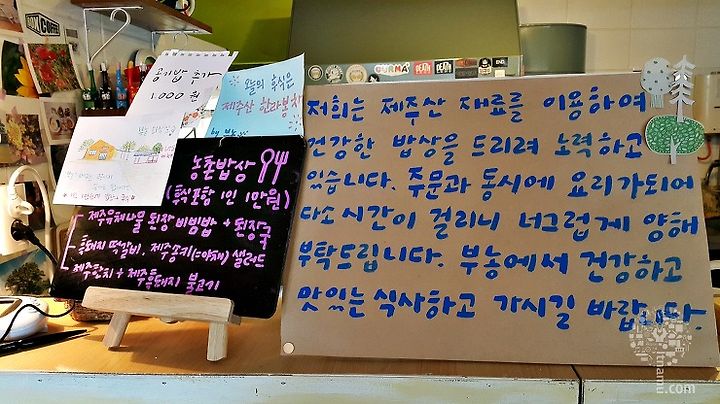 공기밥 추가
1.000원
오늘의 후식은
제주산 한라봉차
농촌밥상
(후식포함 1인 1만원)
제주유채나물 된장 비빔밥 + 된장국
흑돼지 떡갈비, 제주송키(=야채) 샐러드
제주한치 + 제주흑돼지 불고기
저희는 제주산 재료를 이용하여
건강한 밥상을 드리려 노력하고
있습니다. 주문과 동시에 요리가되어
다소 시간이 걸리니 너그럽게 양해
부탁드립니다. 부농에서 건강하고
맛있는 식사하고 가시길 바랍니다.
GURMA
DEATH
DEATH